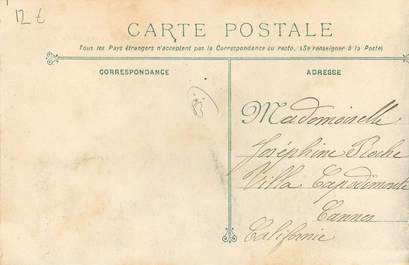 12 t
CARTE POSTALE
Tous les Pays étrangers n'acceptent pas la Correspondance au recto, (Se renseigner à la Poste)
CORRESPONDANCE
ADRESSE
Mademoiselle
Joséphine Roche
Villa Capodimonte
Cannes
Californie